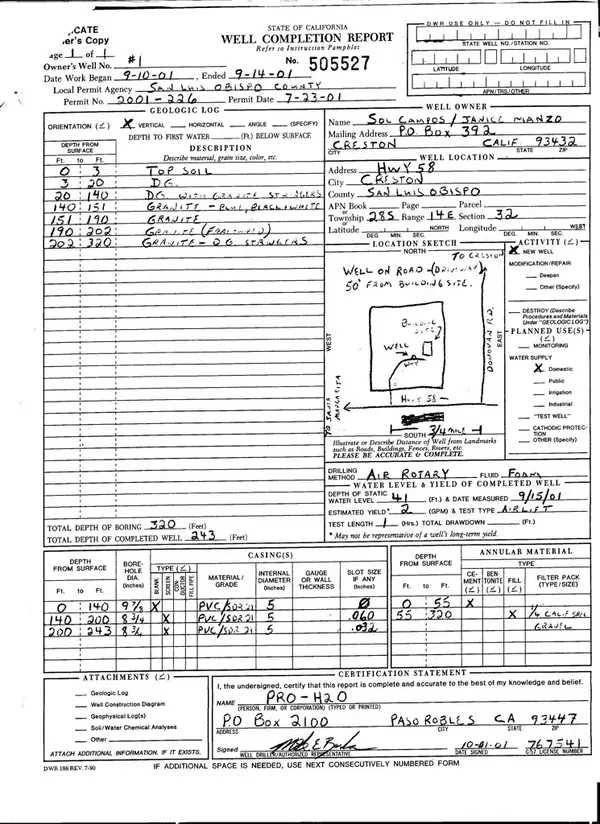 .CATE
er's Copy
age 1 of 1
#1
Owner's Well No.
Date Work Began 9-10-01 , Ended 9-14-01
Local Permit Agency SAN LUIS OBISPO COUNTY
Permit No. 2001-226 Permit Date 7-23-01
STATE OF CALIFORNIA
WELL COMPLETION REPORT
Refer to Instruction Pamphlet
No. 505527
DWR USE ONLY — DO NOT FILL IN
STATE WELL NO./STATION NO.
LATITUDE LONGITUDE
APN/TRS/OTHER
GEOLOGIC LOG
ORIENTATION (≤) X VERTICAL HORIZONTAL ANGLE (SPECIFY)
DEPTH TO FIRST WATER (Ft.) BELOW SURFACE
DEPTH FROM SURFACE
Ft. to Ft.
DESCRIPTION
Describe material, grain size, color, etc.
0 3 TOP SOIL
3 20 D.G.
20 140 DG WITH GRANITE STRINGERS
140 151 GRANITE - BLUE, BLACK, WHITE
151 190 GRANITE
190 202 GRANITE (FRACTURED)
202 320 GRANITE - D.G. STRINGERS
TOTAL DEPTH OF BORING 320 (Feet)
TOTAL DEPTH OF COMPLETED WELL 243 (Feet)
WELL OWNER
Name SOL CAMPOS / JANICE MANZO
Mailing Address P.O BOX 392
CRESTON CALIF 93432
CITY STATE ZIP
WELL LOCATION
Address HWY 58
City CRESTON
County SAN LUIS OBISPO
APN Book Page Parcel
or
Township 28S Range 14E Section 32
or
Latitude NORTH Longitude WEST
DEG. MIN. SEC. DEG. MIN. SEC.
LOCATION SKETCH
NORTH
TO CRESTON
WELL ON ROAD - (DRIVEWAY)
50' FROM BUILDING SITE.
BUILDING SITE
WELL
DONOVAN RD.
WEST
EAST
HWY 58
TO SANTA MARGARITA
SOUTH 3/4 MILE
Illustrate or Describe Distance of Well from Landmarks
such as Roads, Buildings, Fences, Rivers, etc.
PLEASE BE ACCURATE & COMPLETE.
ACTIVITY (≤)
X NEW WELL
MODIFICATION/REPAIR
Deepen
Other (Specify)
DESTROY (Describe
Procedures and Materials
Under "GEOLOGIC LOG")
PLANNED USE(S)
(≤)
MONITORING
WATER SUPPLY
X Domestic
Public
Irrigation
Industrial
"TEST WELL"
CATHODIC PROTEC-
TION
OTHER (Specify)
DRILLING
METHOD AIR ROTARY FLUID FOAM
WATER LEVEL & YIELD OF COMPLETED WELL
DEPTH OF STATIC
WATER LEVEL 41 (Ft.) & DATE MEASURED 9/15/01
ESTIMATED YIELD* 2 (GPM) & TEST TYPE AIRLIFT
TEST LENGTH 1 (Hrs.) TOTAL DRAWDOWN (Ft.)
* May not be representative of a well's long-term yield.
DEPTH FROM SURFACE
Ft. to Ft.
BORE-HOLE DIA. (Inches)
CASING(S)
TYPE (≤)
BLANK SCREEN CON-DUCTOR FILL PIPE
MATERIAL / GRADE
INTERNAL DIAMETER (Inches)
GAUGE OR WALL THICKNESS
SLOT SIZE IF ANY (Inches)
0 140 9 7/8 X PVC/SDR 21 5 Ø
140 200 8 3/4 X PVC/SDR 21 5 .060
200 243 8 3/4 X PVC/SDR 21 5 .032
DEPTH FROM SURFACE
Ft. to Ft.
ANNULAR MATERIAL
TYPE
CE-MENT (≤) BEN-TONITE (≤) FILL (≤) FILTER PACK (TYPE/SIZE)
0 55 X
55 320 X 1/4 CALIF
GRAVEL
ATTACHMENTS (≤)
Geologic Log
Well Construction Diagram
Geophysical Log(s)
Soil/Water Chemical Analyses
Other
ATTACH ADDITIONAL INFORMATION, IF IT EXISTS.
CERTIFICATION STATEMENT
I, the undersigned, certify that this report is complete and accurate to the best of my knowledge and belief.
NAME PRO-H2O
(PERSON, FIRM, OR CORPORATION) (TYPED OR PRINTED)
PO BOX 2100 PASO ROBLES CA 93447
ADDRESS CITY STATE ZIP
Signed 10-01-01 767541
WELL DRILLER/AUTHORIZED REPRESENTATIVE DATE SIGNED C-57 LICENSE NUMBER
DWR 188 REV. 7-90
IF ADDITIONAL SPACE IS NEEDED, USE NEXT CONSECUTIVELY NUMBERED FORM